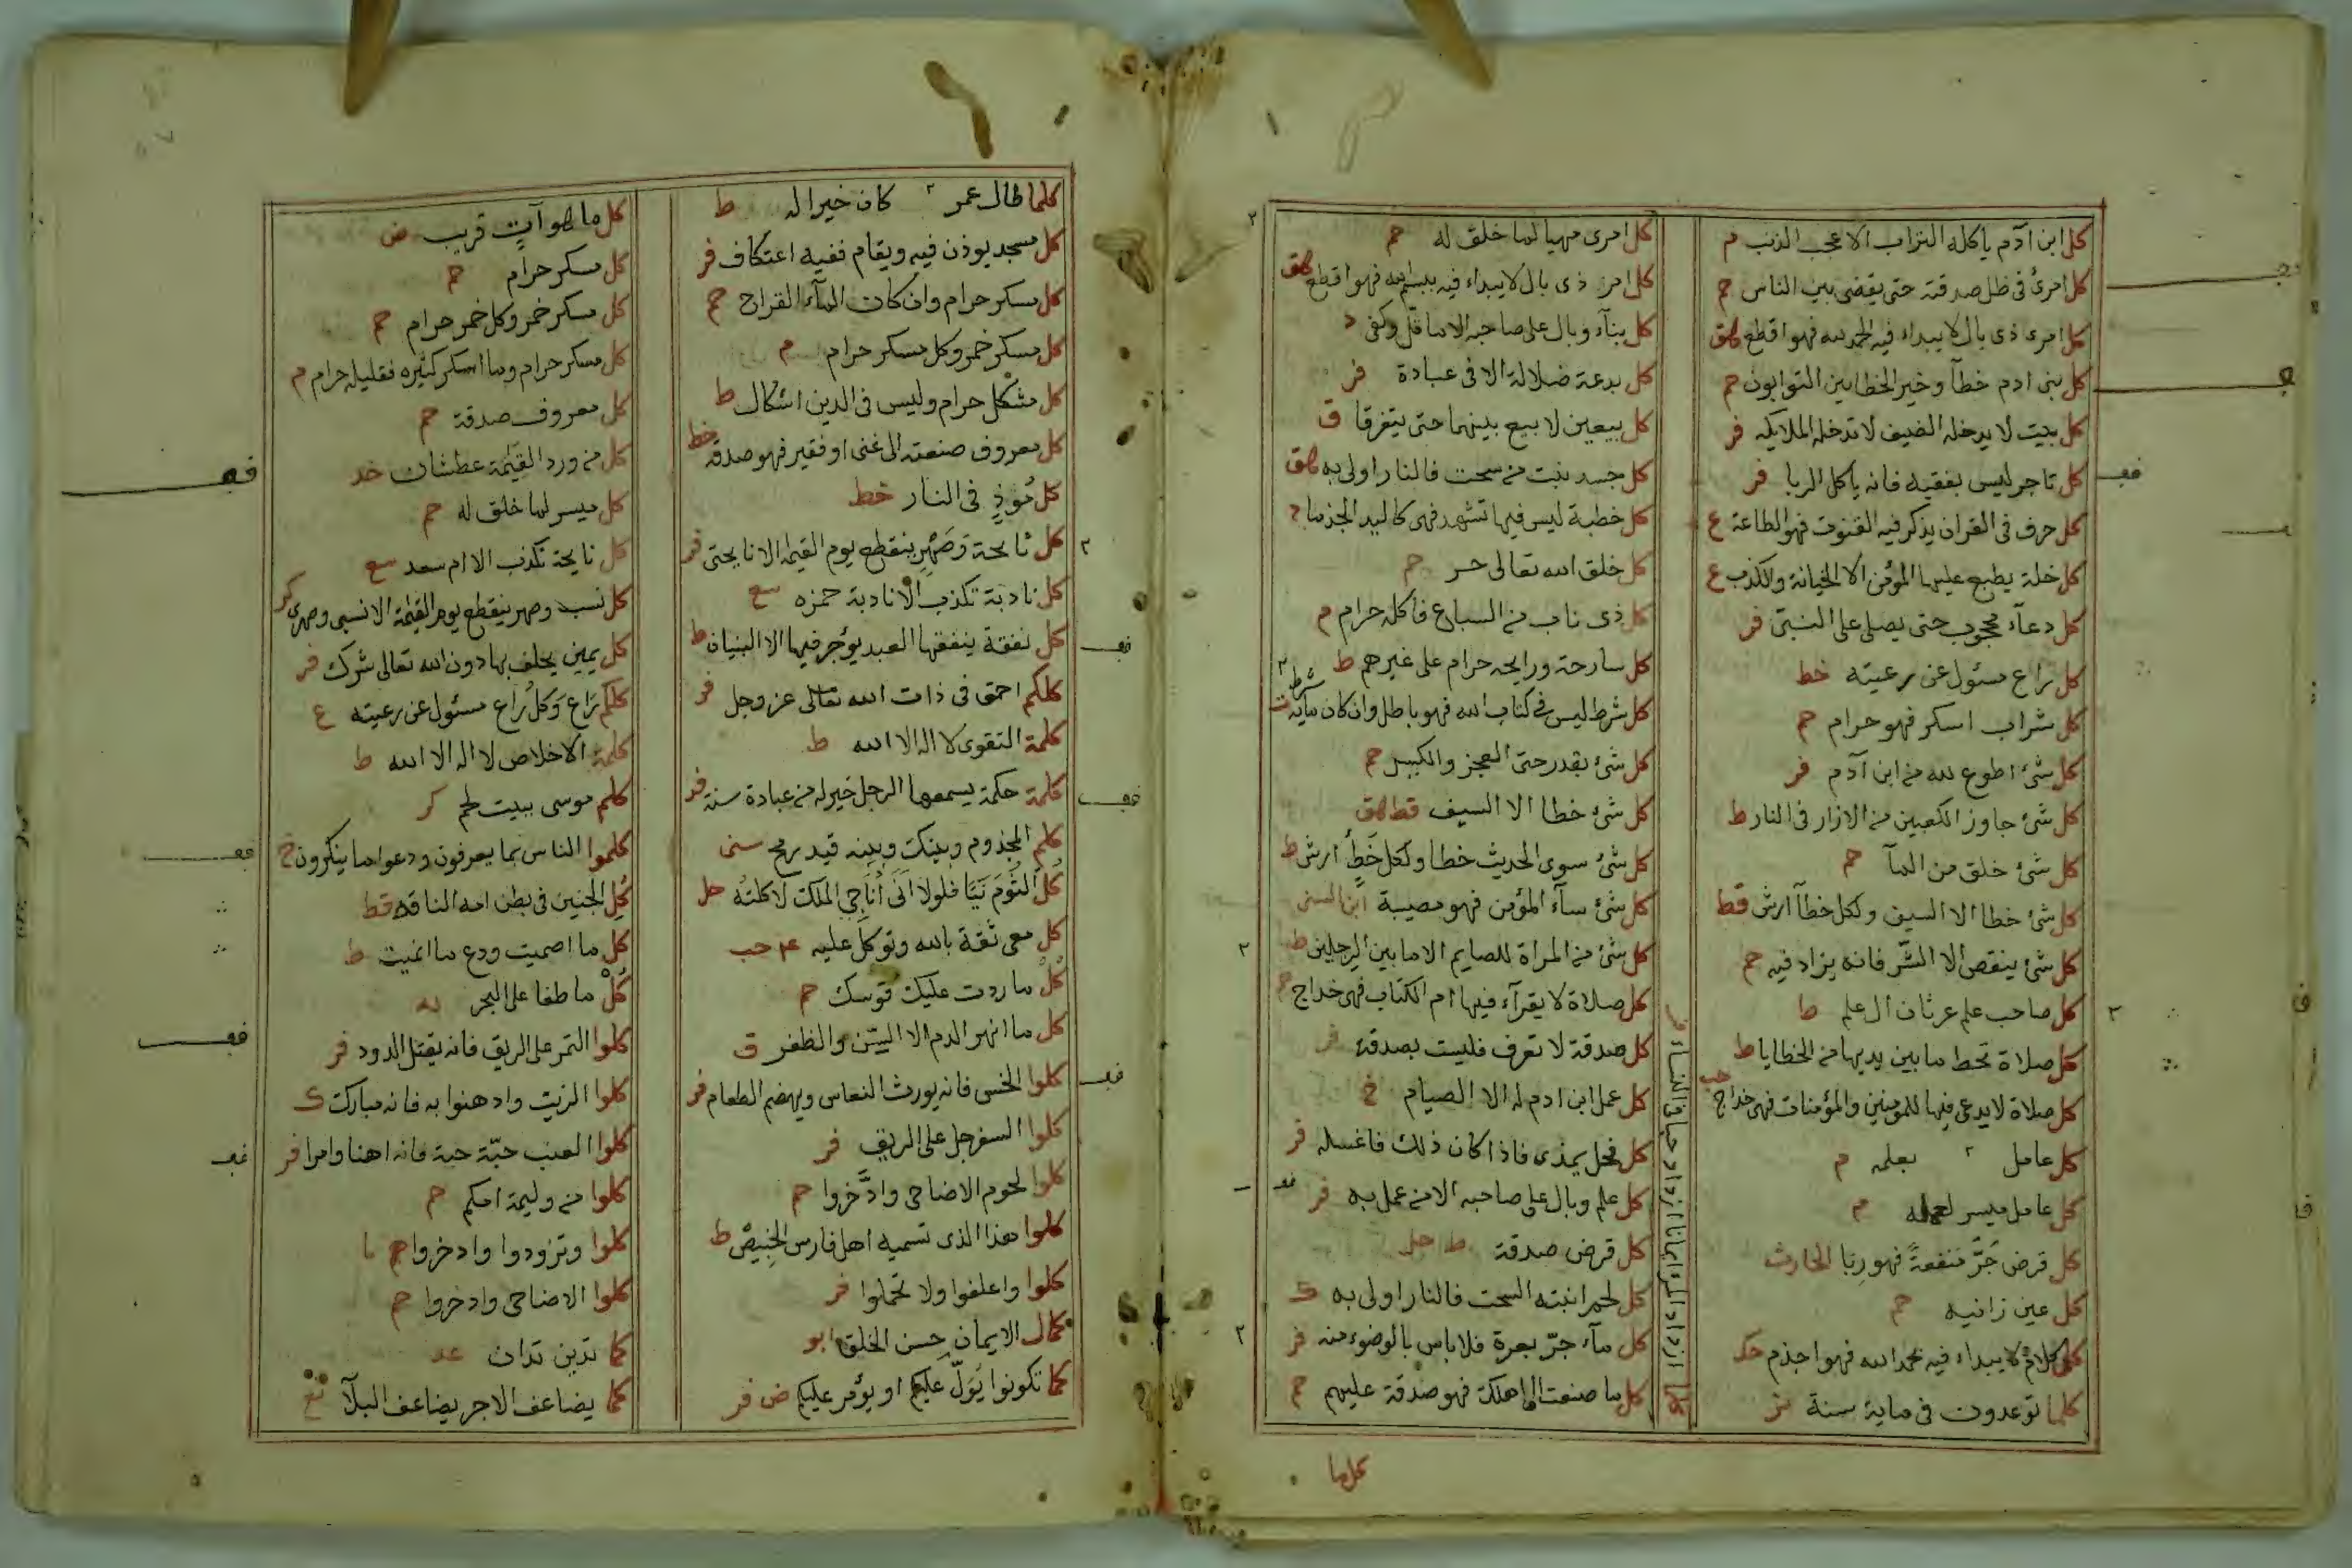 كل ابن آدم ياكله التراب الا عجب الذنب م
كل امرئ فى ظل صدقته حتى يقضى بين الناس حم
كل امرى ذى بال لا يبداء فيه الحمد لله فهو اقطع هق
كل بنى ادم خطآ وخير الخطايين التوابون حم
كل بيت لا يدخله الضيف لا تدخله الملايكه فر
كل تاجر ليس بفقيه فانه ياكل الربا فر
كل حرف فى القران يذكر فيه القنوت فهو الطاعة ع
كل خلة يطبع عليها المؤمن الا الخيانة والكذب ع
كل دعآء محجوب حتى يصلى على النبى فر
كل راع مسئول عن رعيته خط
كل شراب اسكر فهو حرام حم
كل شئ اطوع لله من ابن آدم فر
كل شئ جاوز الكعبين من الازار فى النار ط
كل شئ خلق من المآ حم
كل شئ خطا الا السيف ولكل خطآ ارش قط
كل شئ ينقص الا الشر فانه يزاد فيه حم
كل صاحب علم غرثان الى علم ط
كل صلاة تحط ما بين يديها من الخطايا ط
كل صلاة لا يدعى فيها للمومنين والمؤمنات فهى خداج
كل عامل بعلمه م
كل عامل ميسر لعمله م
كل قرض جَرَّ منفعةً فهو ربا الحارث
كل عين زانيه حم
كل كلام لا يبداء فيه بحمد الله فهو اجذم حك
كلما توعدون فى ماية سنة بز
كلما ازداد المرء ايمانا ازداد حبا فى النساء فر
كل امرى مهيا لما خلق له حم
كل امر ذى بال لا يبداء فيه ببسم الله فهو اقطع هق
كل بنآء وبال على صاحبه الا ما قل وكفى د
كل بدعة ضلالة الا فى عبادة فر
كل بيعين لا بيع بينهما حتى يتفرقا ق
كل جسد نبت من سحت فالنار اولى به هق
كل خطبة ليس فيها تشهد فهى كاليد الجذما د
كل خلق الله تعالى حسن حم
كل ذى ناب من السباع فاكله حرام م
كل سارحة ورايحه حرام على غيرهم ط
كل شرط ليس فى كتاب الله فهو باطل وان كان مايه شرط
كل شئ بقدر حتى العجز والكيس حم
كل شئ خطا الا السيف قط هق
كل شئ سوى الحديث خطا ولكل خَطأُ ارش ط
كل شئ سآء المؤمن فهو مصيبة ابن السنى
كل شئ من المراة للصايم الا ما بين الرجلين ط
كل صلاة لا يقرآء فيها ام الكتاب فهى خداج حم
كل صدقة لا تعرف فليست بصدقة فر
كل عمل ابن ادم له الا الصيام خ
كل فحل يمذى فاذا كان ذلك فاغسله فر
كل علم وبال على صاحبه الا من عمل به فر
كل قرض صدقة ط حل
كل لحم انبته السحت فالنار اولى به ك
كل مآء جرّ بعرة فلا باس بالوضوء منه فر
كل ما صنعت الى اهلك فهو صدقة عليهم حم
كل ما
كلما طال عمر كان خيرا له ط
كل مسجد يوذن فيه ويقام ففيه اعتكاف فر
كل مسكر حرام وان كان المآء القراح حم
كل مسكر خمر وكل مسكر حرام م
كل مشكل حرام وليس فى الدين اشكال ط
كل معروف صنعته الى غنى او فقير فهو صدقة خط
كل مُوذٍ فى النار خط
كل نايحة وَصَهْرٍ ينقطع يوم القيمة الا نايحتى فر
كل نادبة تكذب الا نادبة حمزه سع
كل نفقة ينفقها العبد يؤجر فيها الا البنيان ط
كلكم احمق فى ذات الله تعالى عز وجل فر
كلمة التقوى لا اله الا الله ط
كلمة حكمة يسمعها الرجل خير له من عبادة سنة فر
كلم المجذوم وبينك وبينه قيد رمح سنى
كُلِ الثُوْمَ نَيًّا فلولا اَنّى أُنَاجى الملك لاكلته حل
كل معى ثقة بالله وتوكلا عليه حب
كُلْ ما ردت عليك قوسك حم
كل ما انهر الدم الا السِّن والظفر ق
كلوا الخس فانه يورث النعاس ويهضم الطعام فر
كلوا السفرجل على الريق فر
كلوا لحوم الاضاحى وادَّخروا حم
كلوا هذا الذى تسميه اهل فارس الخبيص ط
كلوا واعلفوا ولا تحملوا فر
كمال الايمان حسن الخلق ابو
كما تكونوا يُوَلّ عليكم او يؤمر عليكم ض فر
كل ما هو آتٍ قريب ض
كل مسكر حرام حم
كل مسكر خمر وكل خمر حرام حم
كل مسكر حرام وما اسكر كثيره فقليله حرام م
كل معروف صدقة حم
كل من ورد القيمة عطشان خد
كل ميسر لما خلق له حم
كل نايحة تكذب الا ام سعد سع
كل نسب وصهر ينقطع يوم القيمة الا نسبى وصهرى كر
كل يمين يحلف بها دون الله تعالى شرك فر
كلكم رَاعٍ وَكلُ رَاعٍ مسئول عن رعيته ع
كلمة الاخلاص لا اله الا الله ط
كلم موسى ببيت لحم كر
كلموا الناس بما يعرفون ودعوا ما ينكرون خ
كُلِ الجنين فى بطن امه الناقه قط
كل ما اصميت ودع ما انميت ط
كُلْ ما طفا على البحر
كلوا التمر على الريق فانه يقتل الدود فر
كلوا الزيت وادهنوا به فانه مبارك ك
كلوا العنب حبّة حبة فانه اهنا وامرا فر
كلوا من وليمة امكم حم
كلوا وتزودوا وادخروا حم
كلوا الاضاحى وادخروا حم
كما تدين تدان عد
كما يضاعف الاجر يضاعف البلآ